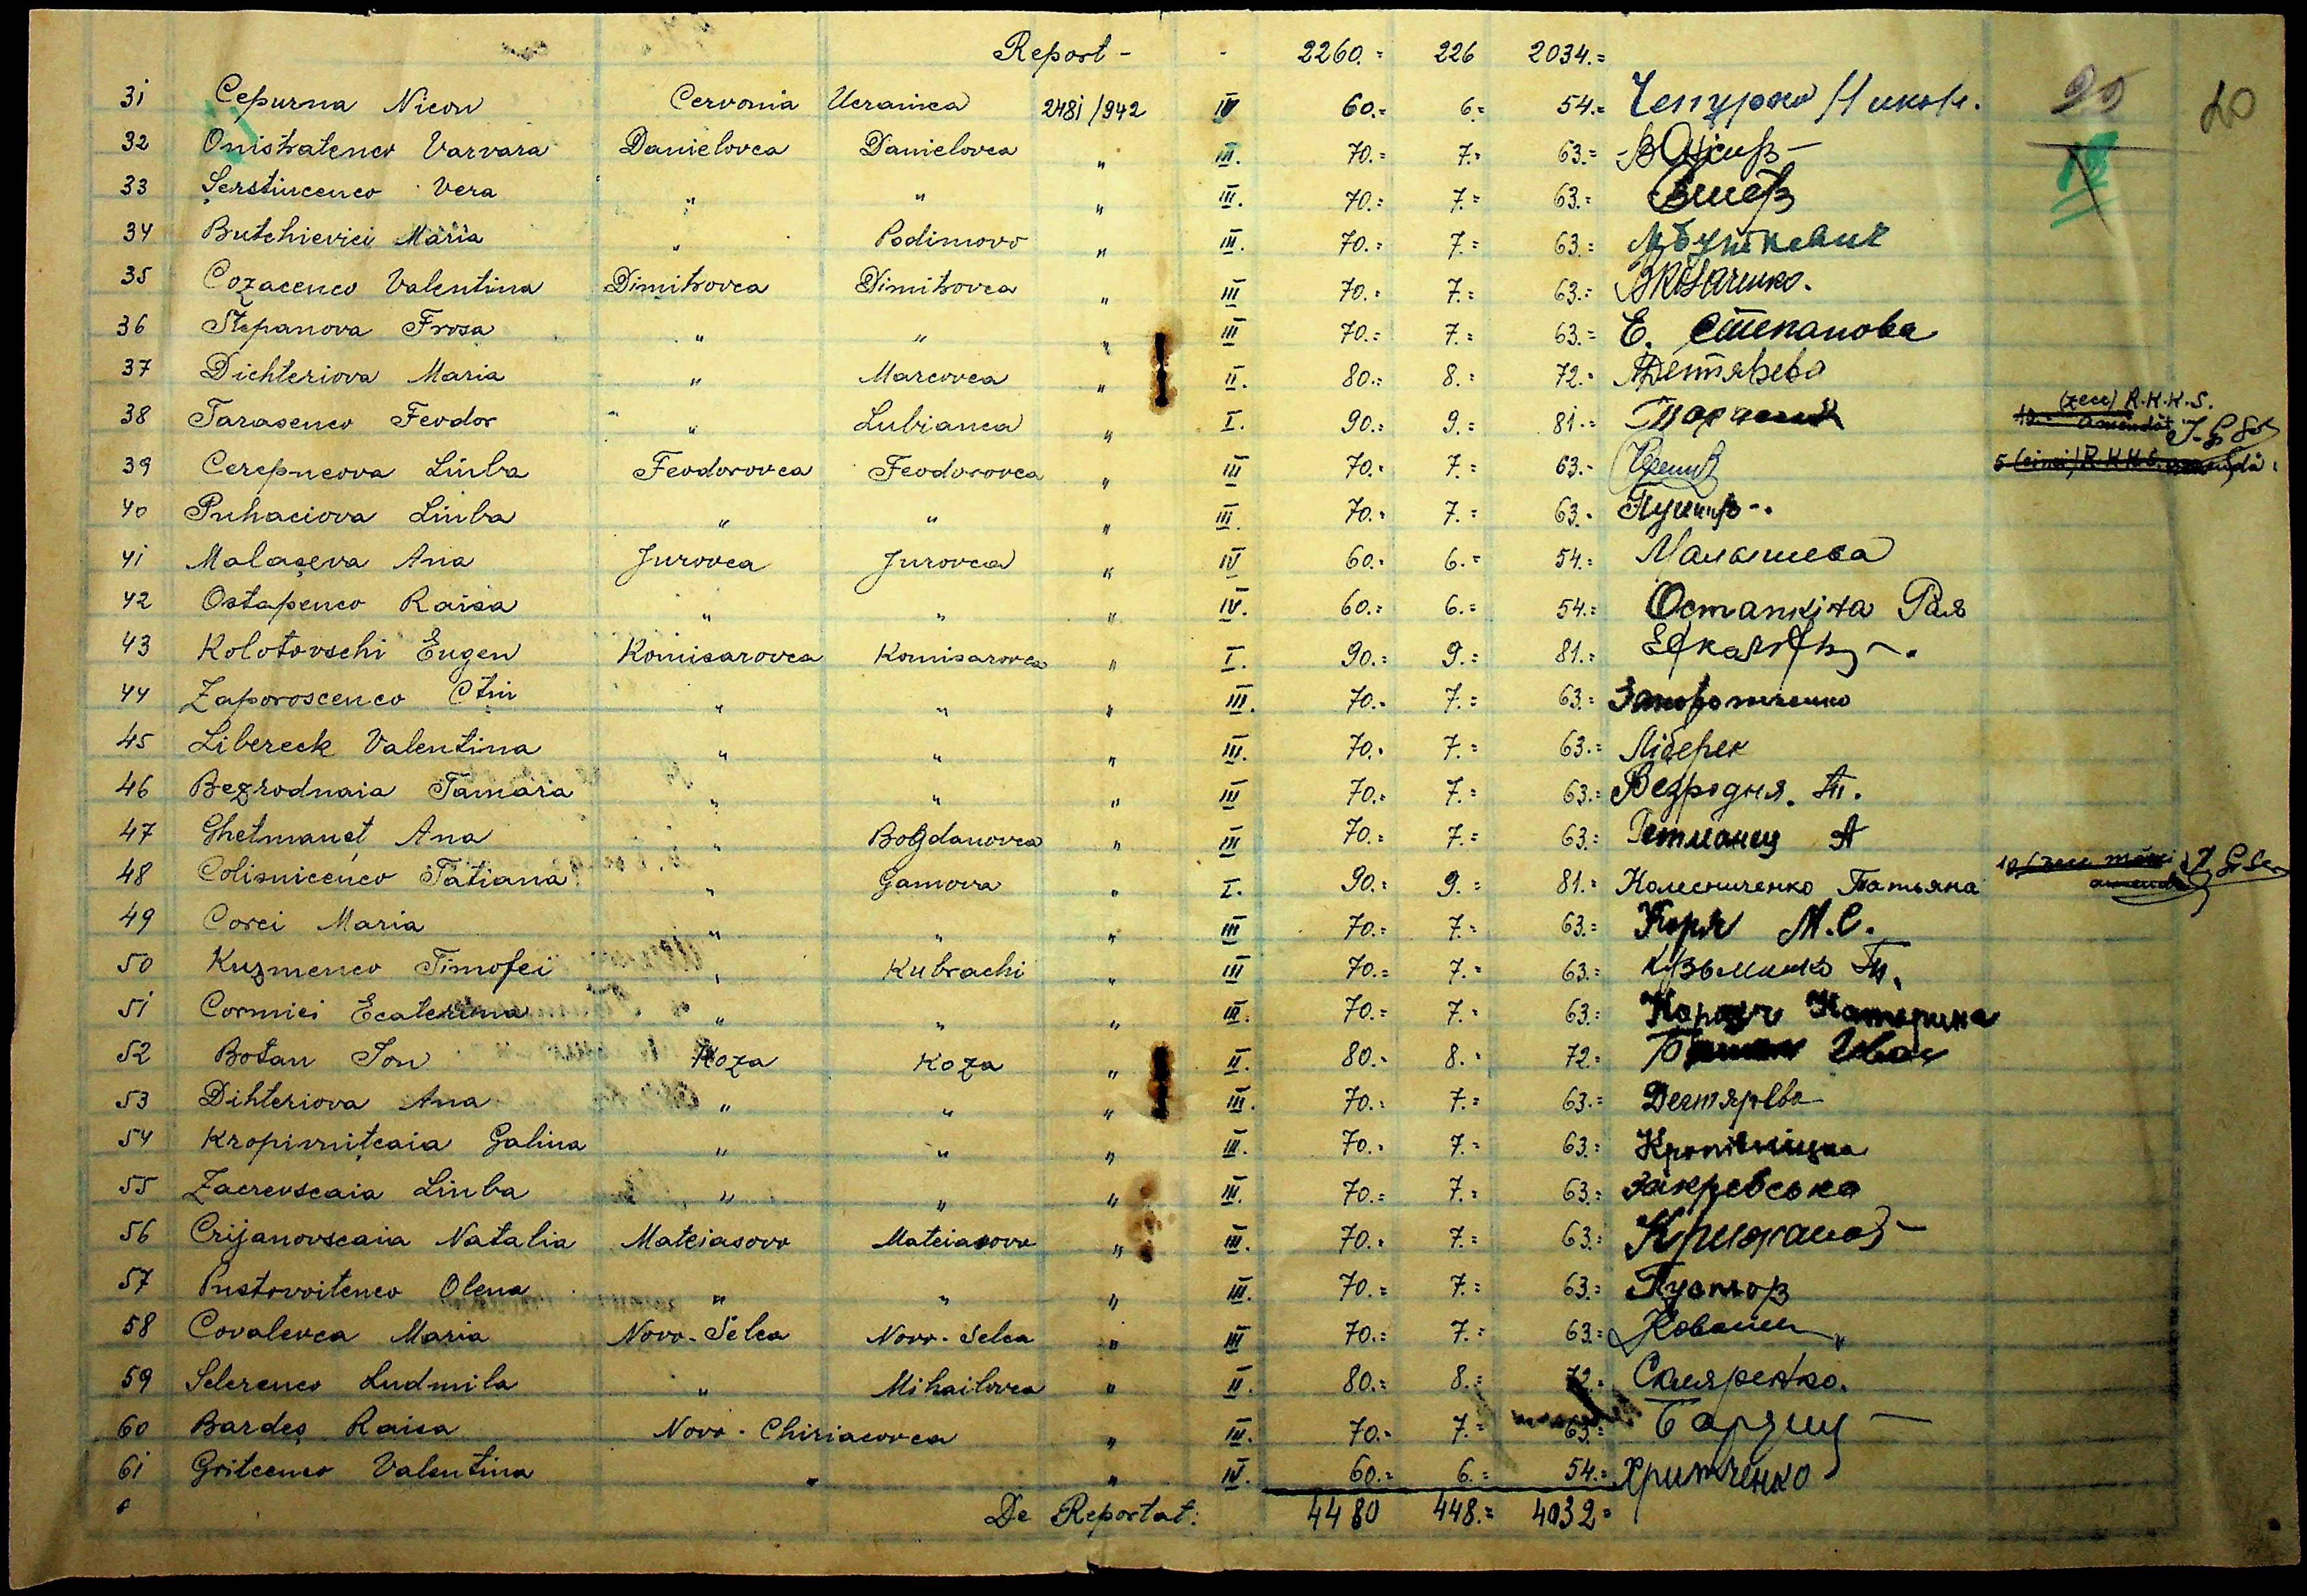 Report - - 2260.= 226 2034.=
31 Cepurna Nicon Cervonia Ucrainca 2481/942 IV 60.= 6.= 54.= 20
32 Onistratenco Varvara Danielovca Danielovca " III. 70.= 7.= 63.=
33 Serstiucenco Vera " " " III. 70.= 7.= 63.=
34 Butchievici Maria " Podimovo " III. 70.= 7.= 63.= Мбуткевич
35 Cozacenco Valentina Dimitrovca Dimitrovca " III 70.= 7.= 63.= ВКозаченко.
36 Stepanova Frosa " " " III 70.= 7.= 63.= Е. Степанова
37 Dichteriova Maria " Marcovca " II. 80.= 8.= 72.=
38 Tarasenco Feodor " Lubianca " I. 90.= 9.= 81.= (zece) R.K.K.S. amendăt
39 Cerepneova Liuba Feodorovca Feodorovca " III 70.= 7.= 63.= 5 (cinci) R.K.K.S. amendă
40 Puhaciova Liuba " " " III. 70.= 7.= 63.=
41 Malaşeva Ana Jurovca Jurovca " IV 60.= 6.= 54.= Малышева
42 Ostapenco Raisa " " " IV. 60.= 6.= 54.= Рая
43 Kolotovschi Eugen Komisarovca Komisarovca " I. 90.= 9.= 81.=
44 Zaporoscenco Ctin " " " III. 70.= 7.= 63.= Запорожченко
45 Libereck Valentina " " " III. 70.= 7.= 63.= Ліберек
46 Bezrodnaia Tamara " " " III 70.= 7.= 63.= Безродня. Т.
47 Ghetmaneţ Ana " Bogdanovca " III 70.= 7.= 63.= Гетманец А
48 Colisnicenco Tatiana " Gamova " I. 90.= 9.= 81.= Колесниченко Татьяна 10 (zece mărci) amendă
49 Corci Maria " " " III 70.= 7.= 63.= М.С.
50 Kuzmenco Timofei " Kubrachi " III 70.= 7.= 63.= Кузьминко Т.
51 Cormici Ecaterina " " " III. 70.= 7.= 63.= Катерина
52 Botan Ion Koza Koza " II. 80.= 8.= 72.= Иван
53 Dihteriova Ana " " " III. 70.= 7.= 63.= Дегтярева
54 Kropivniţcaia Galina " " " III. 70.= 7.= 63.= Кропівніцка
55 Zacrevscaia Liuba " " " III. 70.= 7.= 63.= Закревська
56 Crijanovscaia Natalia Mateiasovo Mateiasovo " III. 70.= 7.= 63.=
57 Pustovoitenco Olena " " " III. 70.= 7.= 63.=
58 Covalevca Maria Novo-Selca Novo-Selca " III 70.= 7.= 63.=
59 Sclerenco Ludmila " Mihailovca " II. 80.= 8.= 72.= Скляренко.
60 Bardeş Raisa Novo-Chiriacovca " III. 70.= 7.= 63.=
61 Gritcenco Valentina " " IV. 60.= 6.= 54.= Хритченко
De Reportat: 4480 448.= 4032=